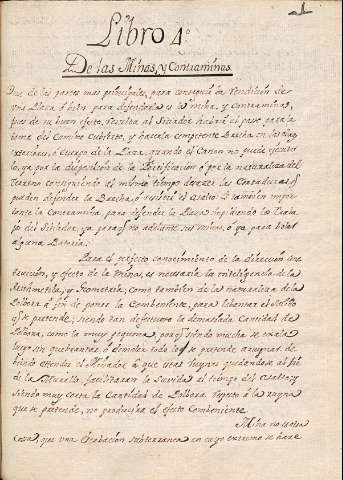 Libro 4º
De las Minas, y Contraminas
Una de las partes mas principales, para conseguir la Rendicion de
una Plaza, ô bien para defenderla es la Mina, y Contraminas,
pues de su buen efecto, resulta al Sitiador el paso, para la
toma del Camino Cubierto, y hacerla competente Brecha en las obras
exteriores, ô Cuerpo de la Plaza, quando el Cañon no puede ejecutar
lo, ya por la disposicion de la Fortificacion ô por la naturaleza del
Terreno al mismo tiempo las Cortaduras, q.
pueden defender la Brecha, ô resistir el asalto: Es tambien impor
tante la Contramina para defender la Plaza impidiendo los Traba
jos del Sitiador, ya para q. no adelante sus minas, ô ya para bolar
alguna Bateria.
Para el perfecto conocimiento de la direccion
, y efecto de la Mina, es necesaria la inteligencia de la
Arithmetica, y Geometria, como tambien de la naturaleza de la
Polvora â fin de poner la Combeniente, para lebantar el Solido
q. se pretende; siendo tan defectuosa la demasiada Cantidad de
Polvora, como la muy pequeña, porq. siendo mucha se exala
luego sin quebrantar, ô demoler todo lo q. se pretende arruinar, de
biendo atender el Minador â que estas al pie
de la Muralla, facilitaran la Suvida al tiempo del Asalto; y
siendo muy corta la Cantidad de Polbora respecto â la ruyna
que se pretende, no producira el efecto Combeniente.
Mina no es otra
Cosa, que una Excabacion subterranea en cuyo extremo se hace